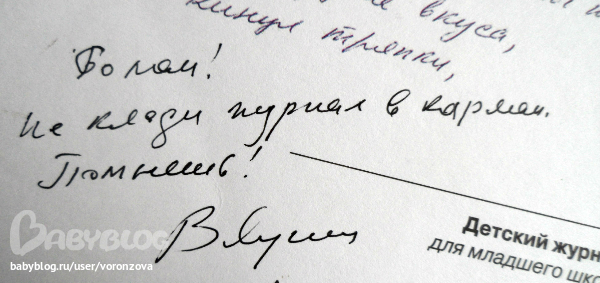 вкуса,
кинул тряпки,
Не клади журнал в карман.
Помнешь!
В Лунин
Детский журн
для младшего шко
BABYBLOG
babyblog.ru/user/voronzova